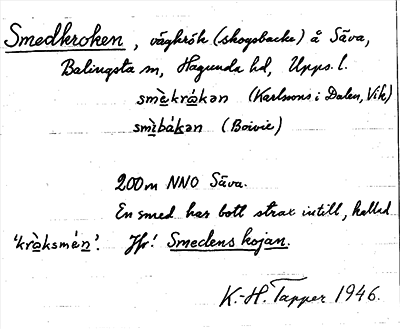 Smedkroken, vägkrök (skogsbacke) å Säva,
Balingsta sn, Hagunda hd, Upps. l.
smè̱krá̱kən (Karlssons i Dalen, Vik)
smìbákən (Boivie)
200 m NNO Säva.
En smed har bott strax intill, kallad
'krà̱ksmén̲'. Jfr! Smedens kojan.
K.-H. Tapper 1946.